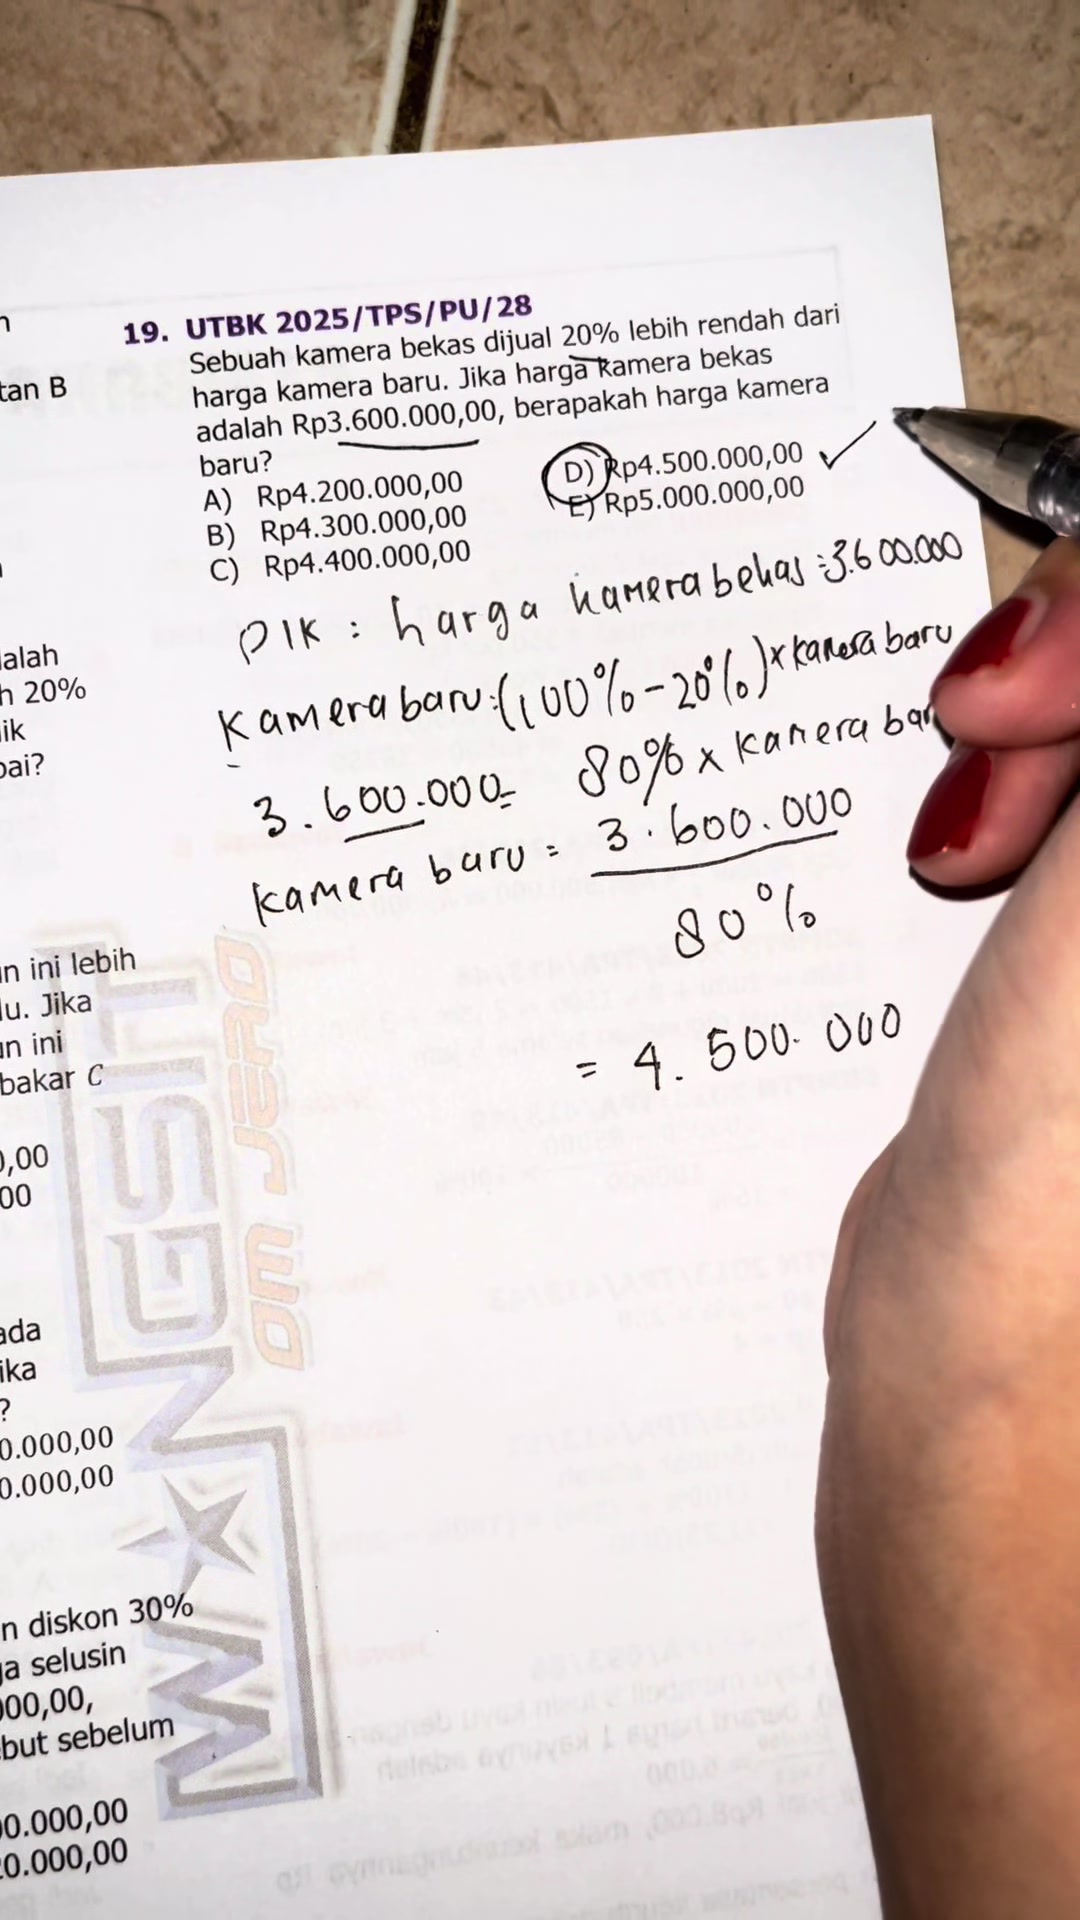 19. UTBK 2025/TPS/PU/28
Sebuah kamera bekas dijual 20% lebih rendah dari
harga kamera baru. Jika harga kamera bekas
adalah Rp3.600.000,00, berapakah harga kamera
baru?
A) Rp4.200.000,00
B) Rp4.300.000,00
C) Rp4.400.000,00
D) Rp4.500.000,00 ✓
E) Rp5.000.000,00
DIK : harga kamera bekas : 3.600.000
Kamera baru : (100% - 20%) x kamera baru
3.600.000 = 80% x kamera bar
kamera baru = 3.600.000
80%
= 4.500.000
tan B
alah
h 20%
ik
ai?
n ini lebih
lu. Jika
un ini
bakar C
0,00
00
ada
ika
?
0.000,00
0.000,00
n diskon 30%
ga selusin
000,00,
but sebelum
00.000,00
0.000,00
OM JERO